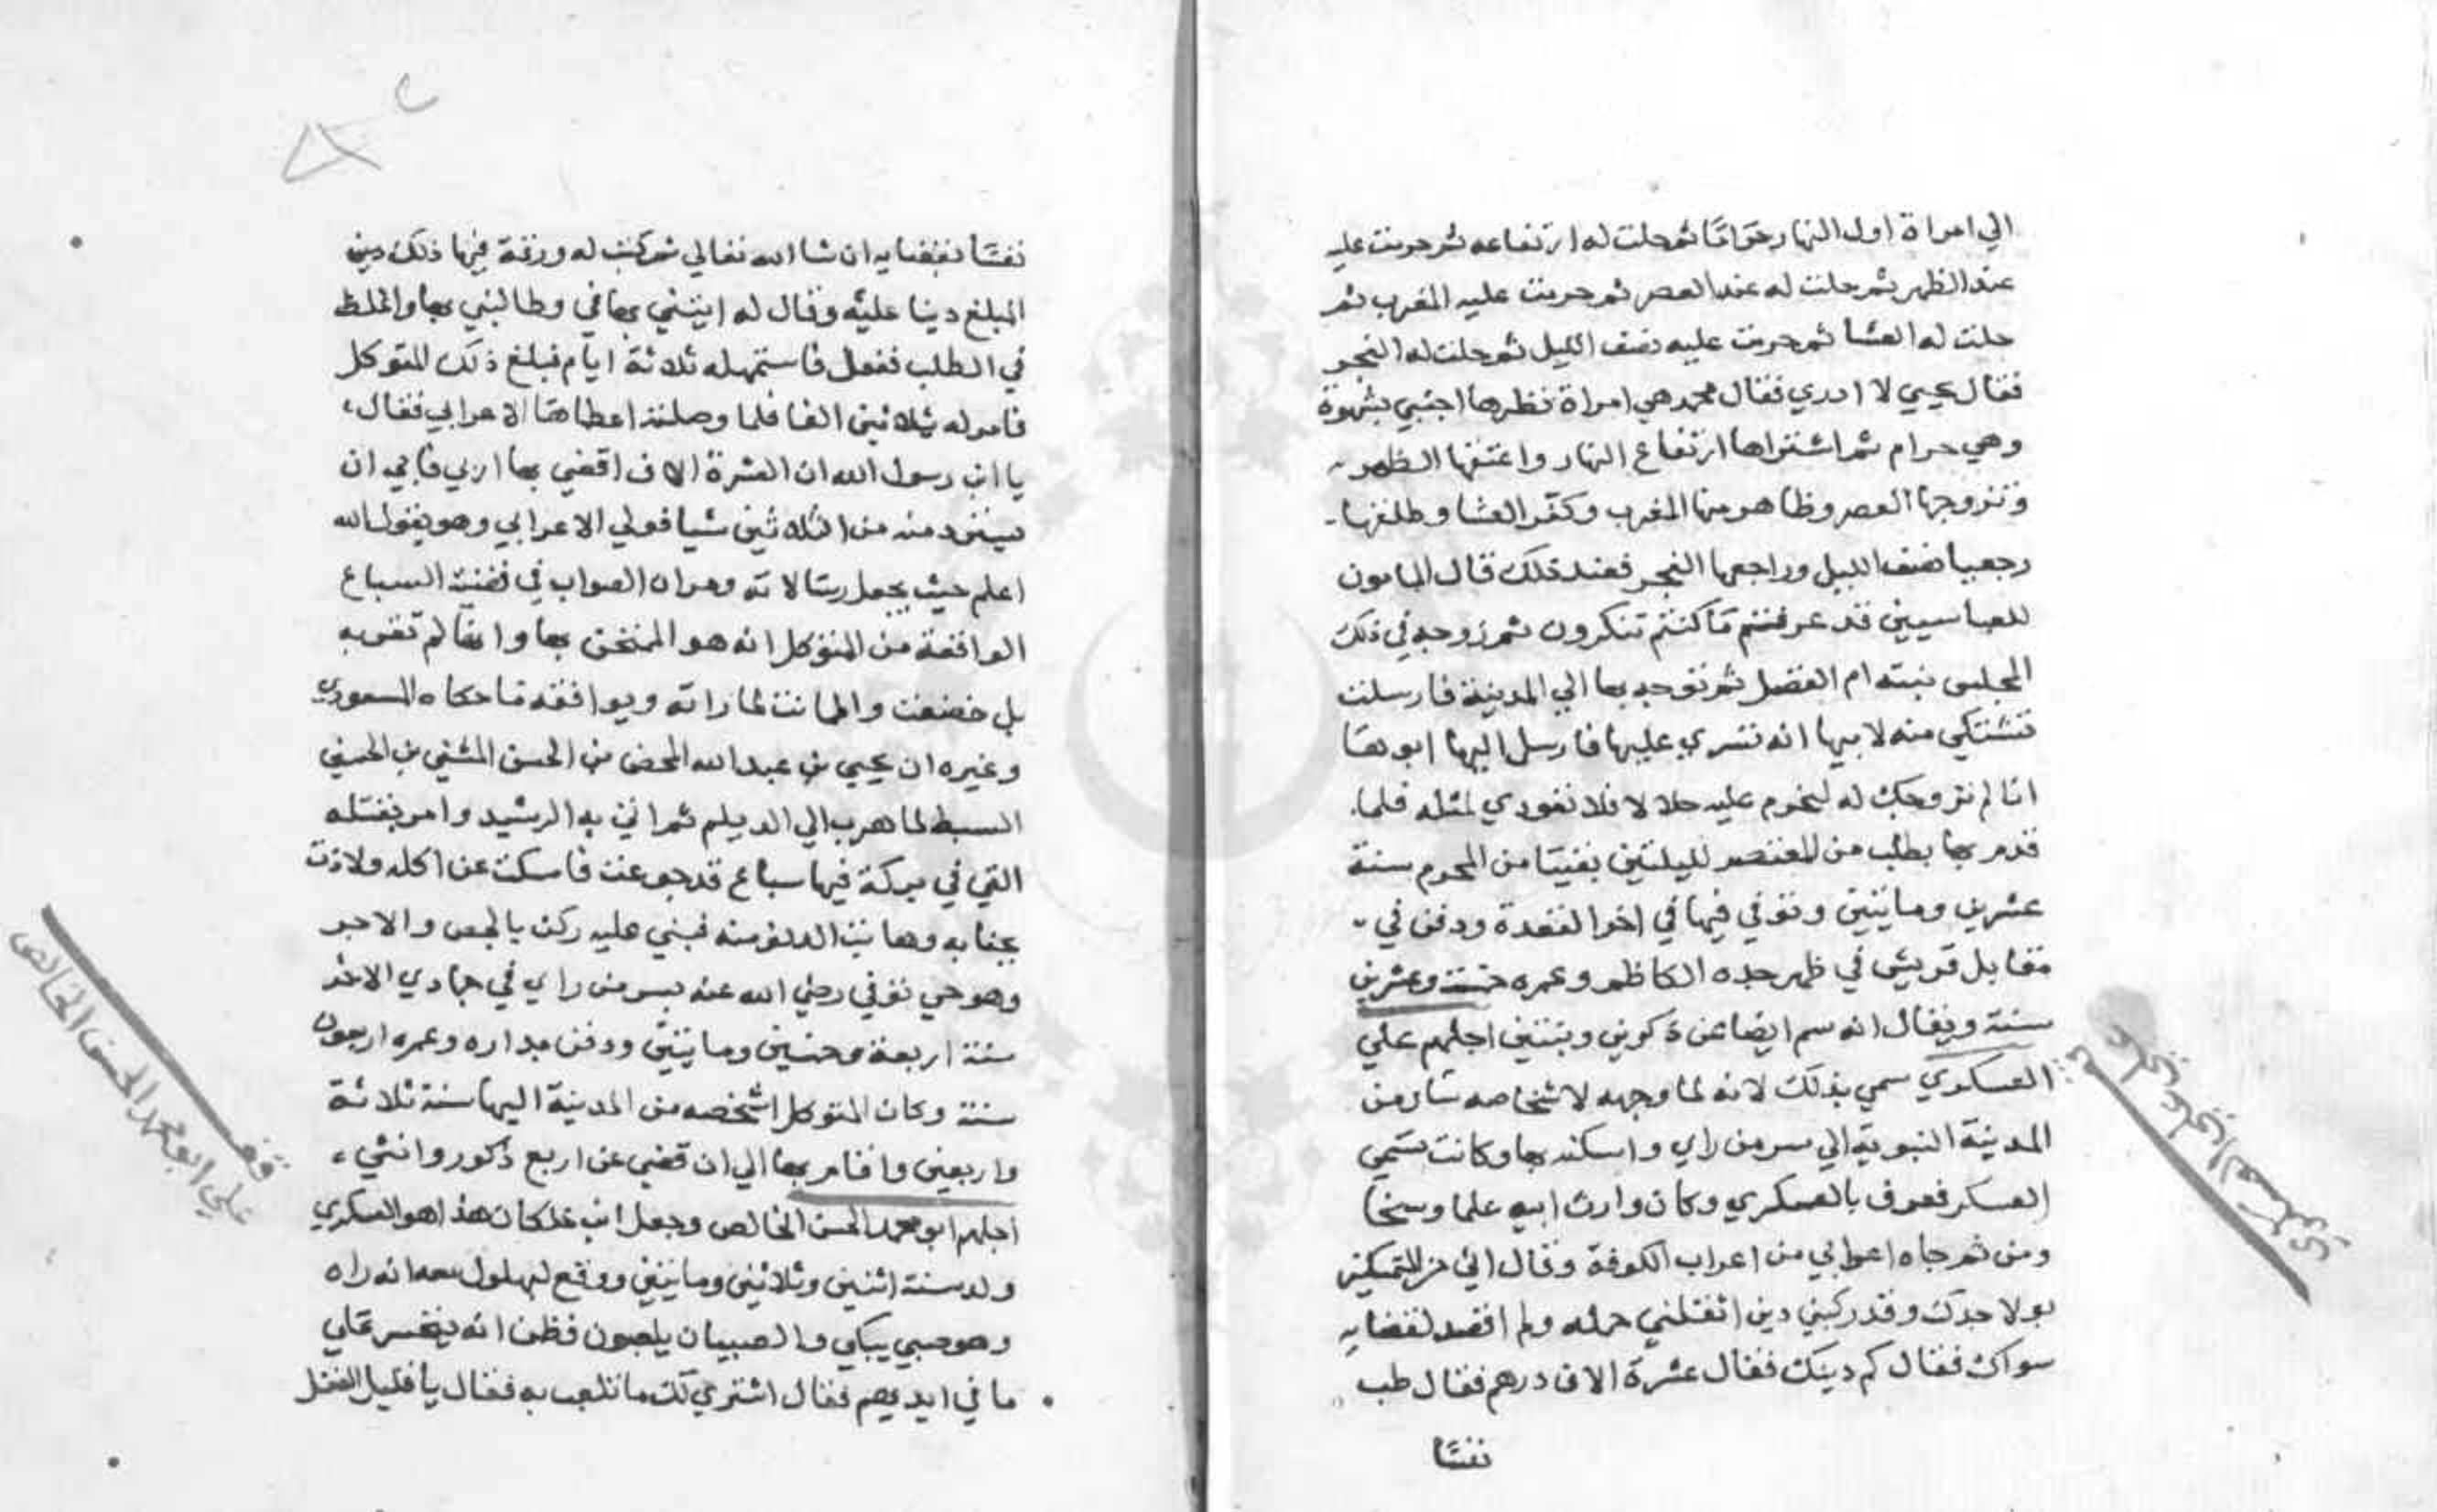 الي امراة اول النهار حراما ثم حلت له ارتفاعه ثم حرمت عليه
عند الظهر ثم حلت له عند العصر ثم حرمت عليه المغرب ثم
حلت له العشا ثم حرمت عليه نصف الليل ثم حلت له الفجر
فقال يحيي لا ادري فقال محمد هي امراة نظرها اجنبي بشهوة
وهي حرام ثم اشتراها ارتفاع النهار واعتقها الظهر
وتزوجها العصر وظاهر منها المغرب وكفر العشا وطلقها
رجعيا نصف الليل وراجعها الفجر فعند ذلك قال المامون
للعباسيين قد عرفتم ما كنتم تنكرون ثم زوجه في ذلك
المجلس بنته ام الفضل ثم توجه بها الي المدينة فارسلت
تشتكي منه لابيها انه تسري عليها فارسل اليها ابوها
انا لم نزوجك له لنحرم عليه حلالا فلا تعودي لمثله فلما
قدم بها بطلب من المعتصم لليلتين بقيتا من المحرم سنة
عشرين وماتيين وتوفي فيها في اخر القعدة ودفن في
مقابل قريش في ظهر جده الكاظم وعمره خمسة وعشرين
سنة ويقال انه سم ايضا عن ذكرين وبنتين اجلهم علي
العسكري سمي بذلك لانه لما وجهه لاشخاصه سار من
المدينة النبوية الي سر من راي واسكنه بها وكانت تسمي
العسكر فعرف بالعسكري وكان وارث ابيه علما وسخا
ومن ثم جاه اعرابي من اعراب الكوفة وقال اني من المتمسكين
بولا جدك وقد ركبني دين اثقلني حمله ولم اقصد لقضايه
سواك فقال كم دينك فقال عشرة الاف درهم فقال طب
نفسا
علي العسكري
نفسا بقضايه ان شا الله تعالي ثم كتب له ورقة فيها ذلك دين
المبلغ دينا عليه وقال له ايتني بها في وطالبني بها واغلظ
في الطلب ففعل فاستمهله ثلاثة ايام فبلغ ذلك المتوكل
فامر له بثلاثين الفا فلما وصلته اعطاها الاعرابي فقال
يا ابن رسول الله ان العشرة الاف اقضي بها اربي فابي ان
يسترد منه من الثلاثين شيا فولي الاعرابي وهو يقول الله
اعلم حيث يجعل رسالاته ومر ان الصواب في قضية السباع
الواقعة من المتوكل انه هو الممتحن بها وانها لم تقربه
بل خضعت واطمانت لما راته ويوافقه ما حكاه المسعودي
وغيره ان يحيي بن عبد الله المحض بن الحسن المثني بن الحسن
السبط لما هرب الي الديلم ثم اتي به الرشيد وامر بقتله
القي في بركة فيها سباع قد جوعت فامسكت عن اكله ولاذت
بجنابه وهابت الدنو منه فبني عليه ركن بالجص والاجر
وهو حي توفي رضي الله عنه بسر من راي في جمادي الاخر
سنة اربعة وخمسين وماتيين ودفن بداره وعمره اربعون
سنة وكان المتوكل اشخصه من المدينة اليها سنة ثلاثة
واربعين واقام بها الي ان قضي عن اربع ذكور وانثي
اجلهم ابو محمد الحسن الخالص وجعل ابن خلكان هذا هو العسكري
ولد سنة اثنين وثلاثين وماتيين ووقع لبهلول معه انه راه
وهو صبي يبكي والصبيان يلعبون فظن انه يتحسر علي
ما في ايديهم فقال اشتري لك ما تلعب به فقال يا قليل العقل
علي ابو محمد الحسن الخالص